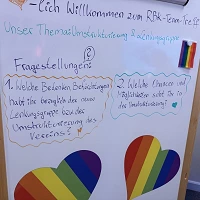 -Lich Willkommen zum RBK-Team-Treff
Unser Thema: Umstrukturierung & Lenkungsgruppe
Fragestellungen:
1. Welche Bedenken
habt ihr bezüglich der neuen
Lenkungsgruppe bzw. der
Umstrukturierung des
Vereins?
2. Welche Chancen und
Möglichkeiten seht ihr in
der Umstrukturierung?